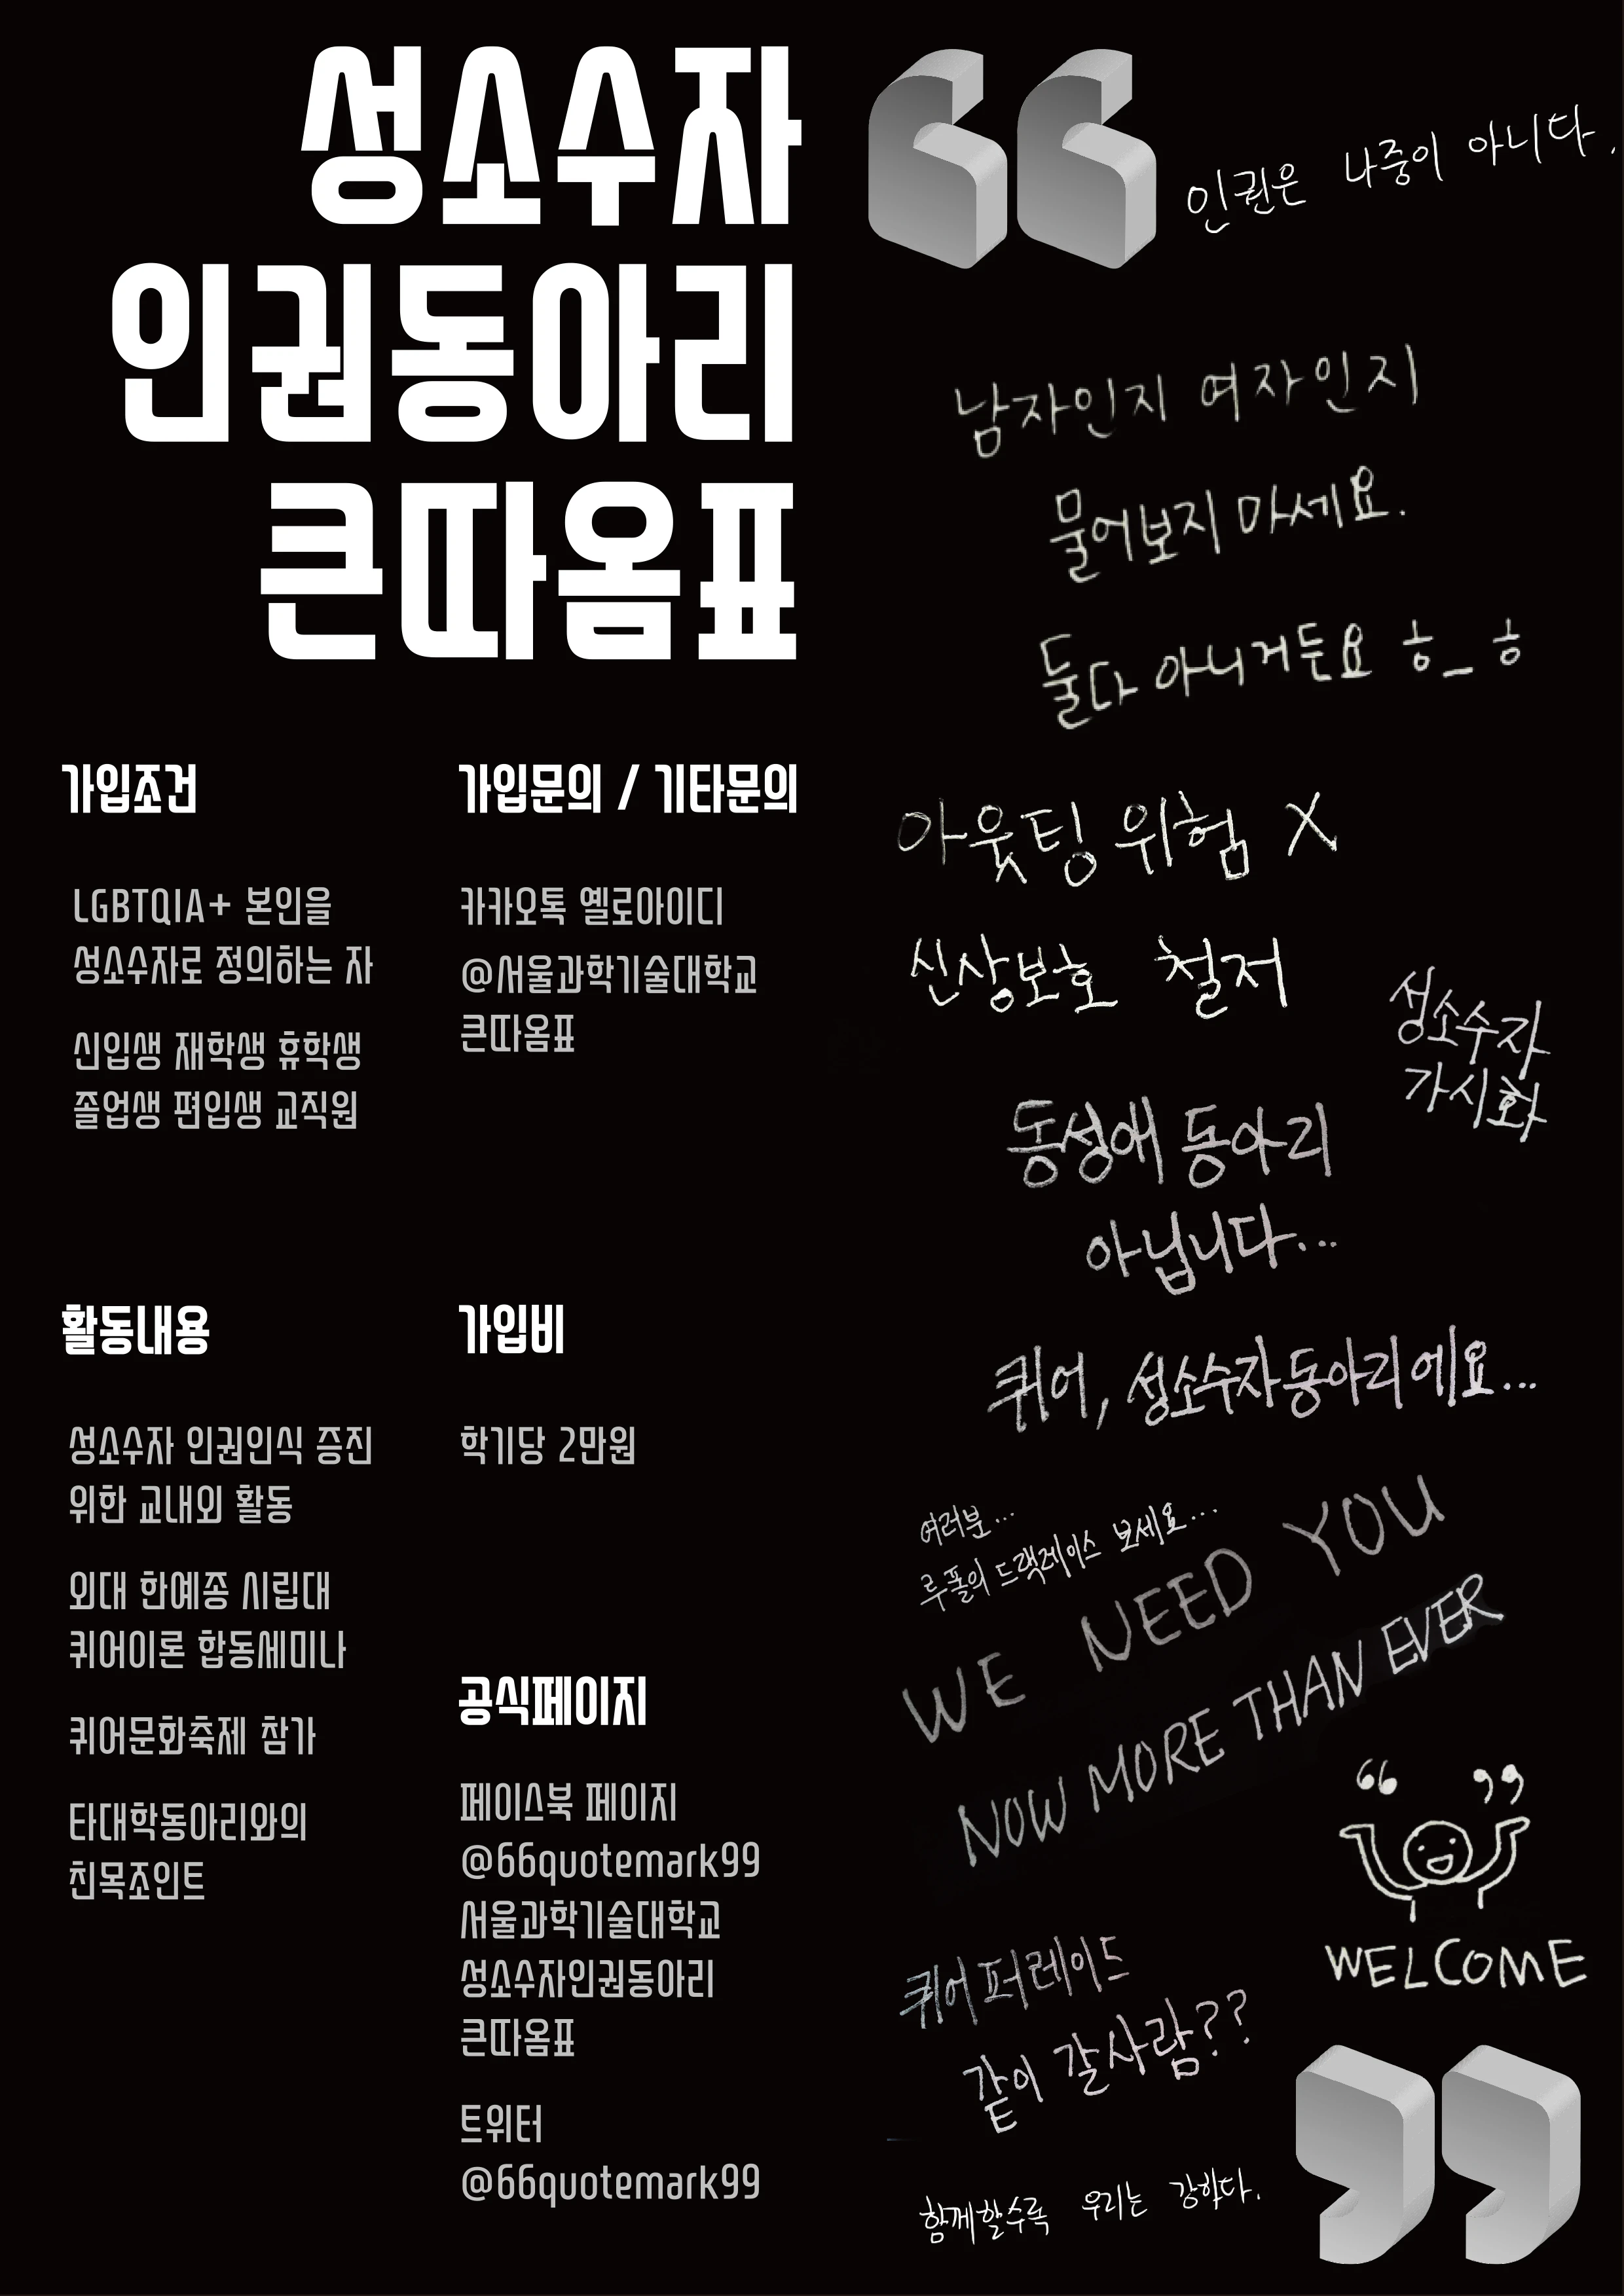 성소수자
인권동아리
큰따옴표
가입조건
LGBTQIA+ 본인을
성소수자로 정의하는 자
신입생 재학생 휴학생
졸업생 편입생 교직원
가입문의 / 기타문의
카카오톡 옐로아이디
@서울과학기술대학교
큰따옴표
활동내용
성소수자 인권인식 증진
위한 교내외 활동
외대 한예종 시립대
퀴어이론 합동세미나
퀴어문화축제 참가
타대학동아리와의
친목조인트
가입비
학기당 2만원
공식페이지
페이스북 페이지
@66quotemark99
서울과학기술대학교
성소수자인권동아리
큰따옴표
트위터
@66quotemark99
“
인권은 나중이 아니다.
남자인지 여자인지
물어보지 마세요.
둘다 아니거든요 ㅎ_ㅎ
아웃팅 위험 X
신상보호 철저
성소수자
가시화
동성애 동아리
아닙니다...
퀴어, 성소수자동아리에요...
여러분...
루폴의 드랙레이스 보세요...
WE NEED YOU
NOW MORE THAN EVER
“ ”
WELCOME
퀴어퍼레이드
같이 갈사람??
함께할수록 우리는 강하다.
”